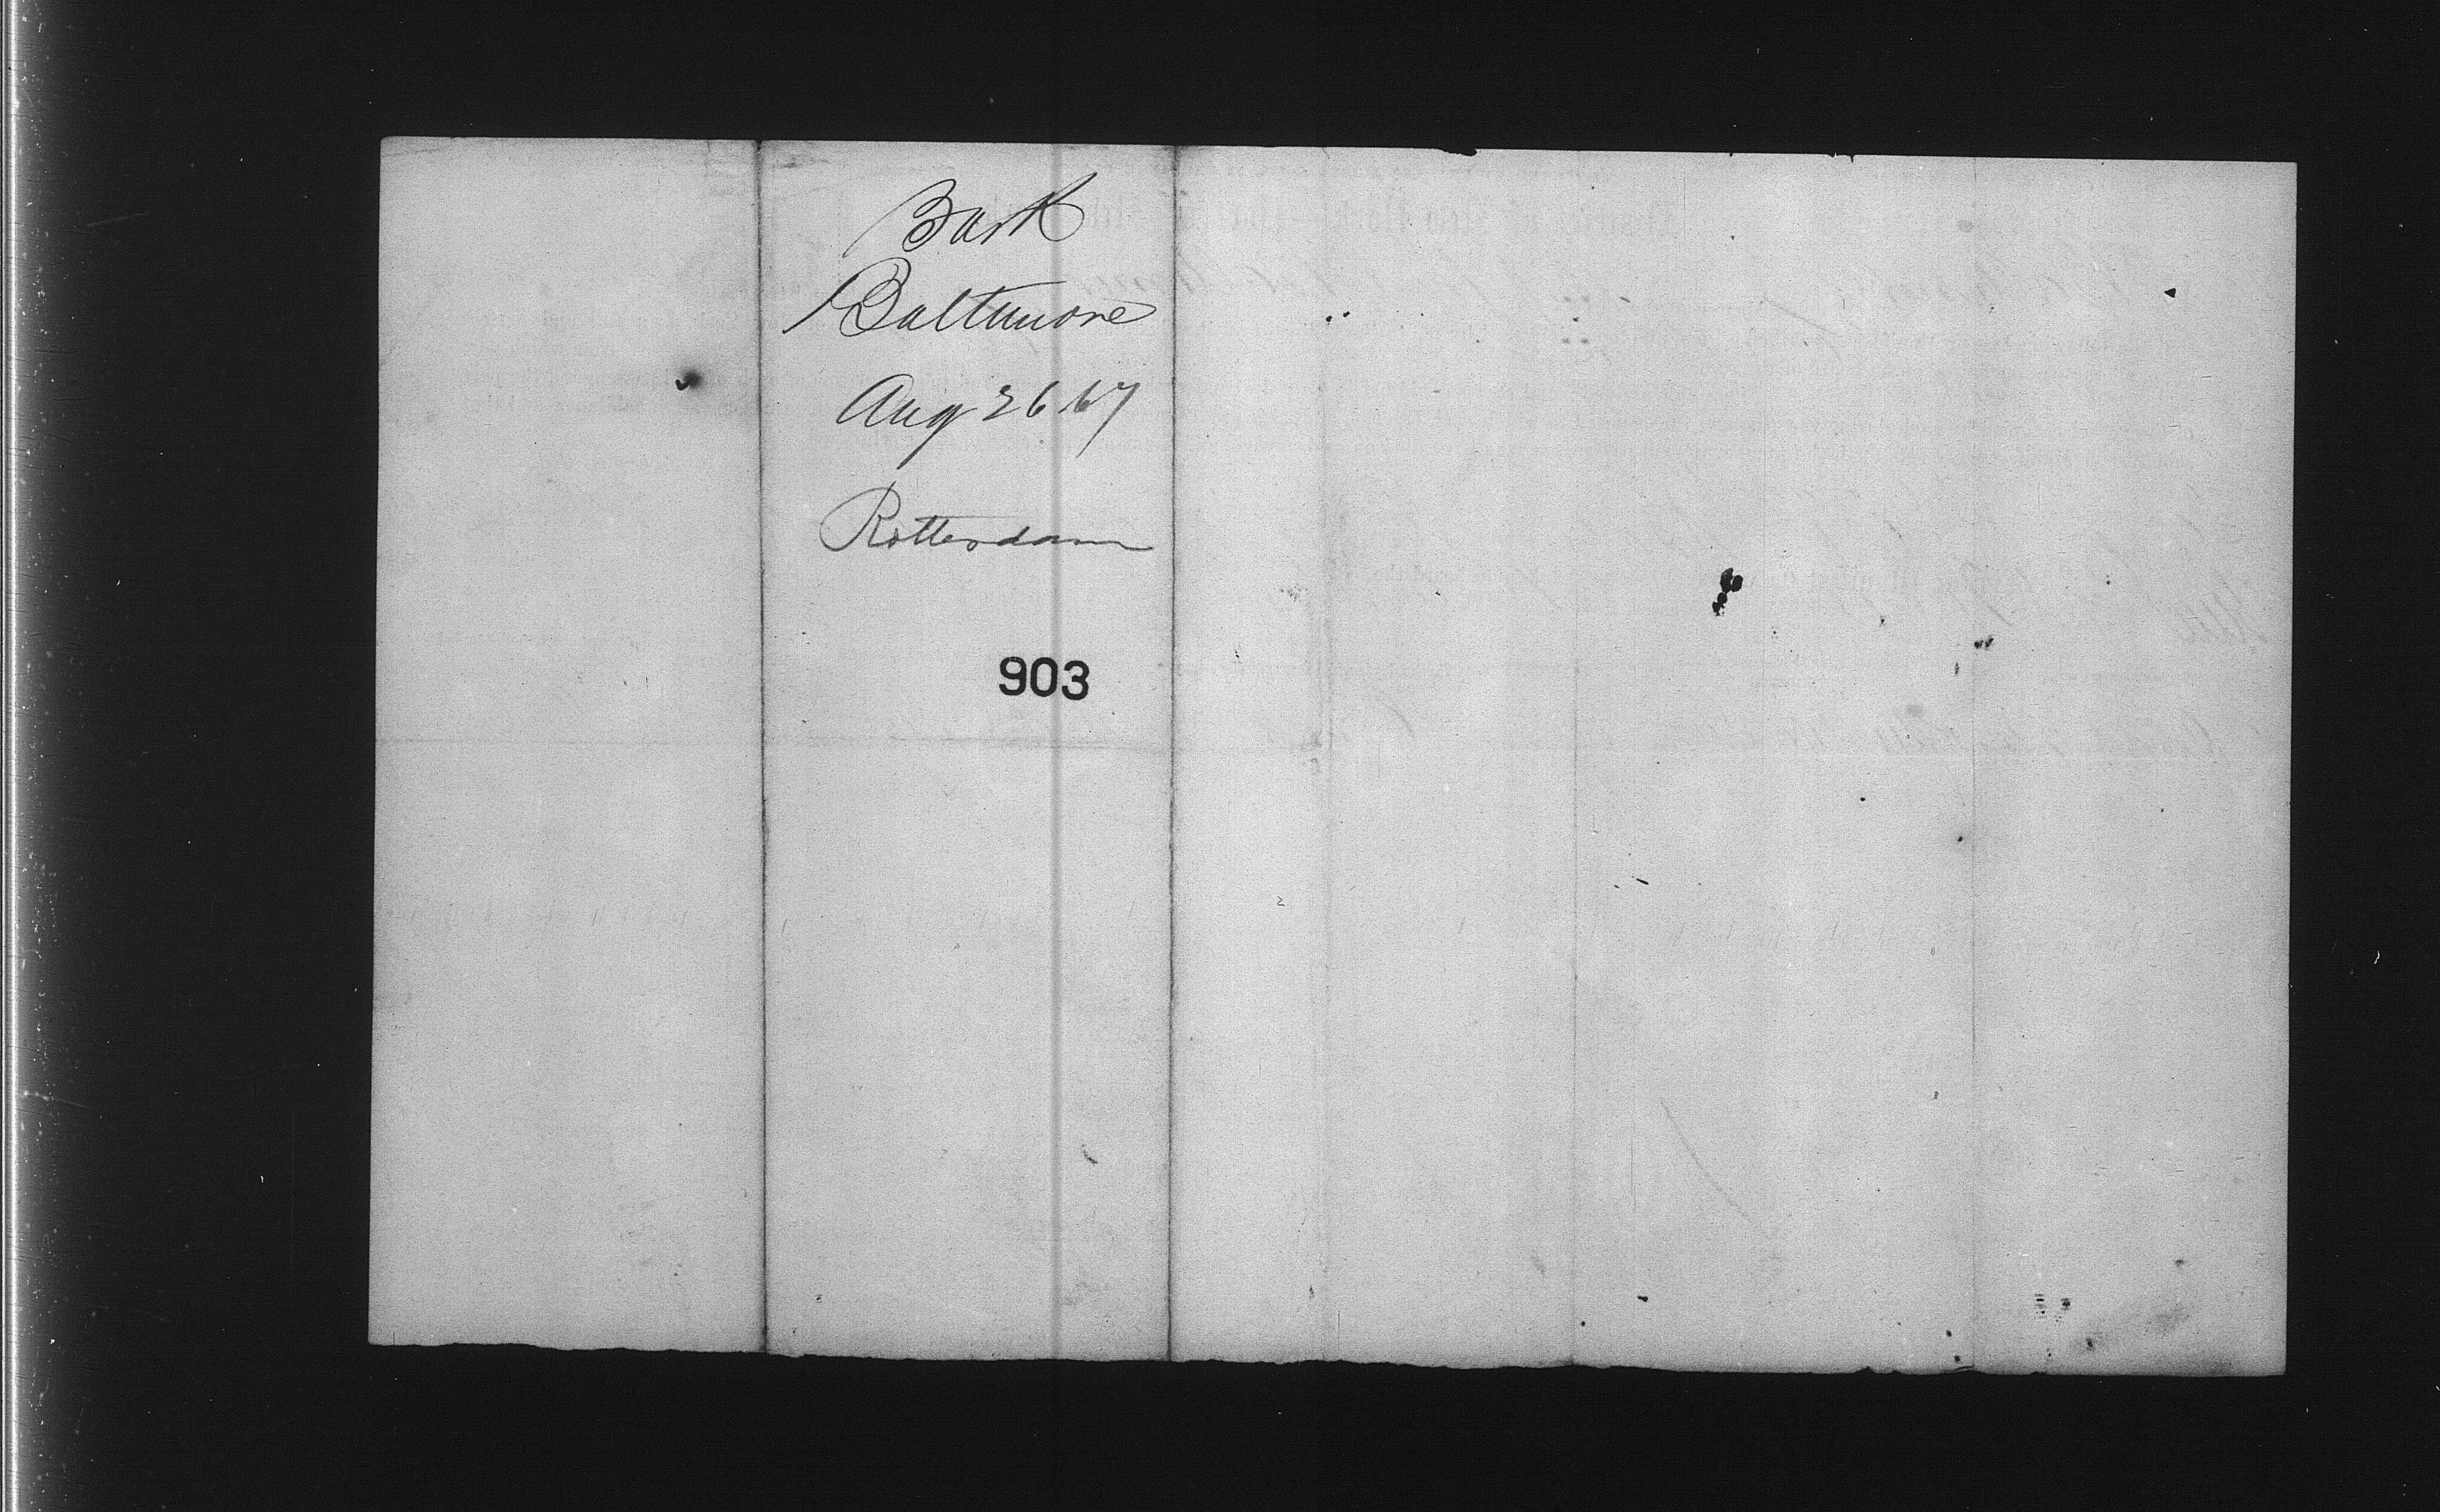 Bark
Baltimore
Aug 26 67
Rotterdam
903